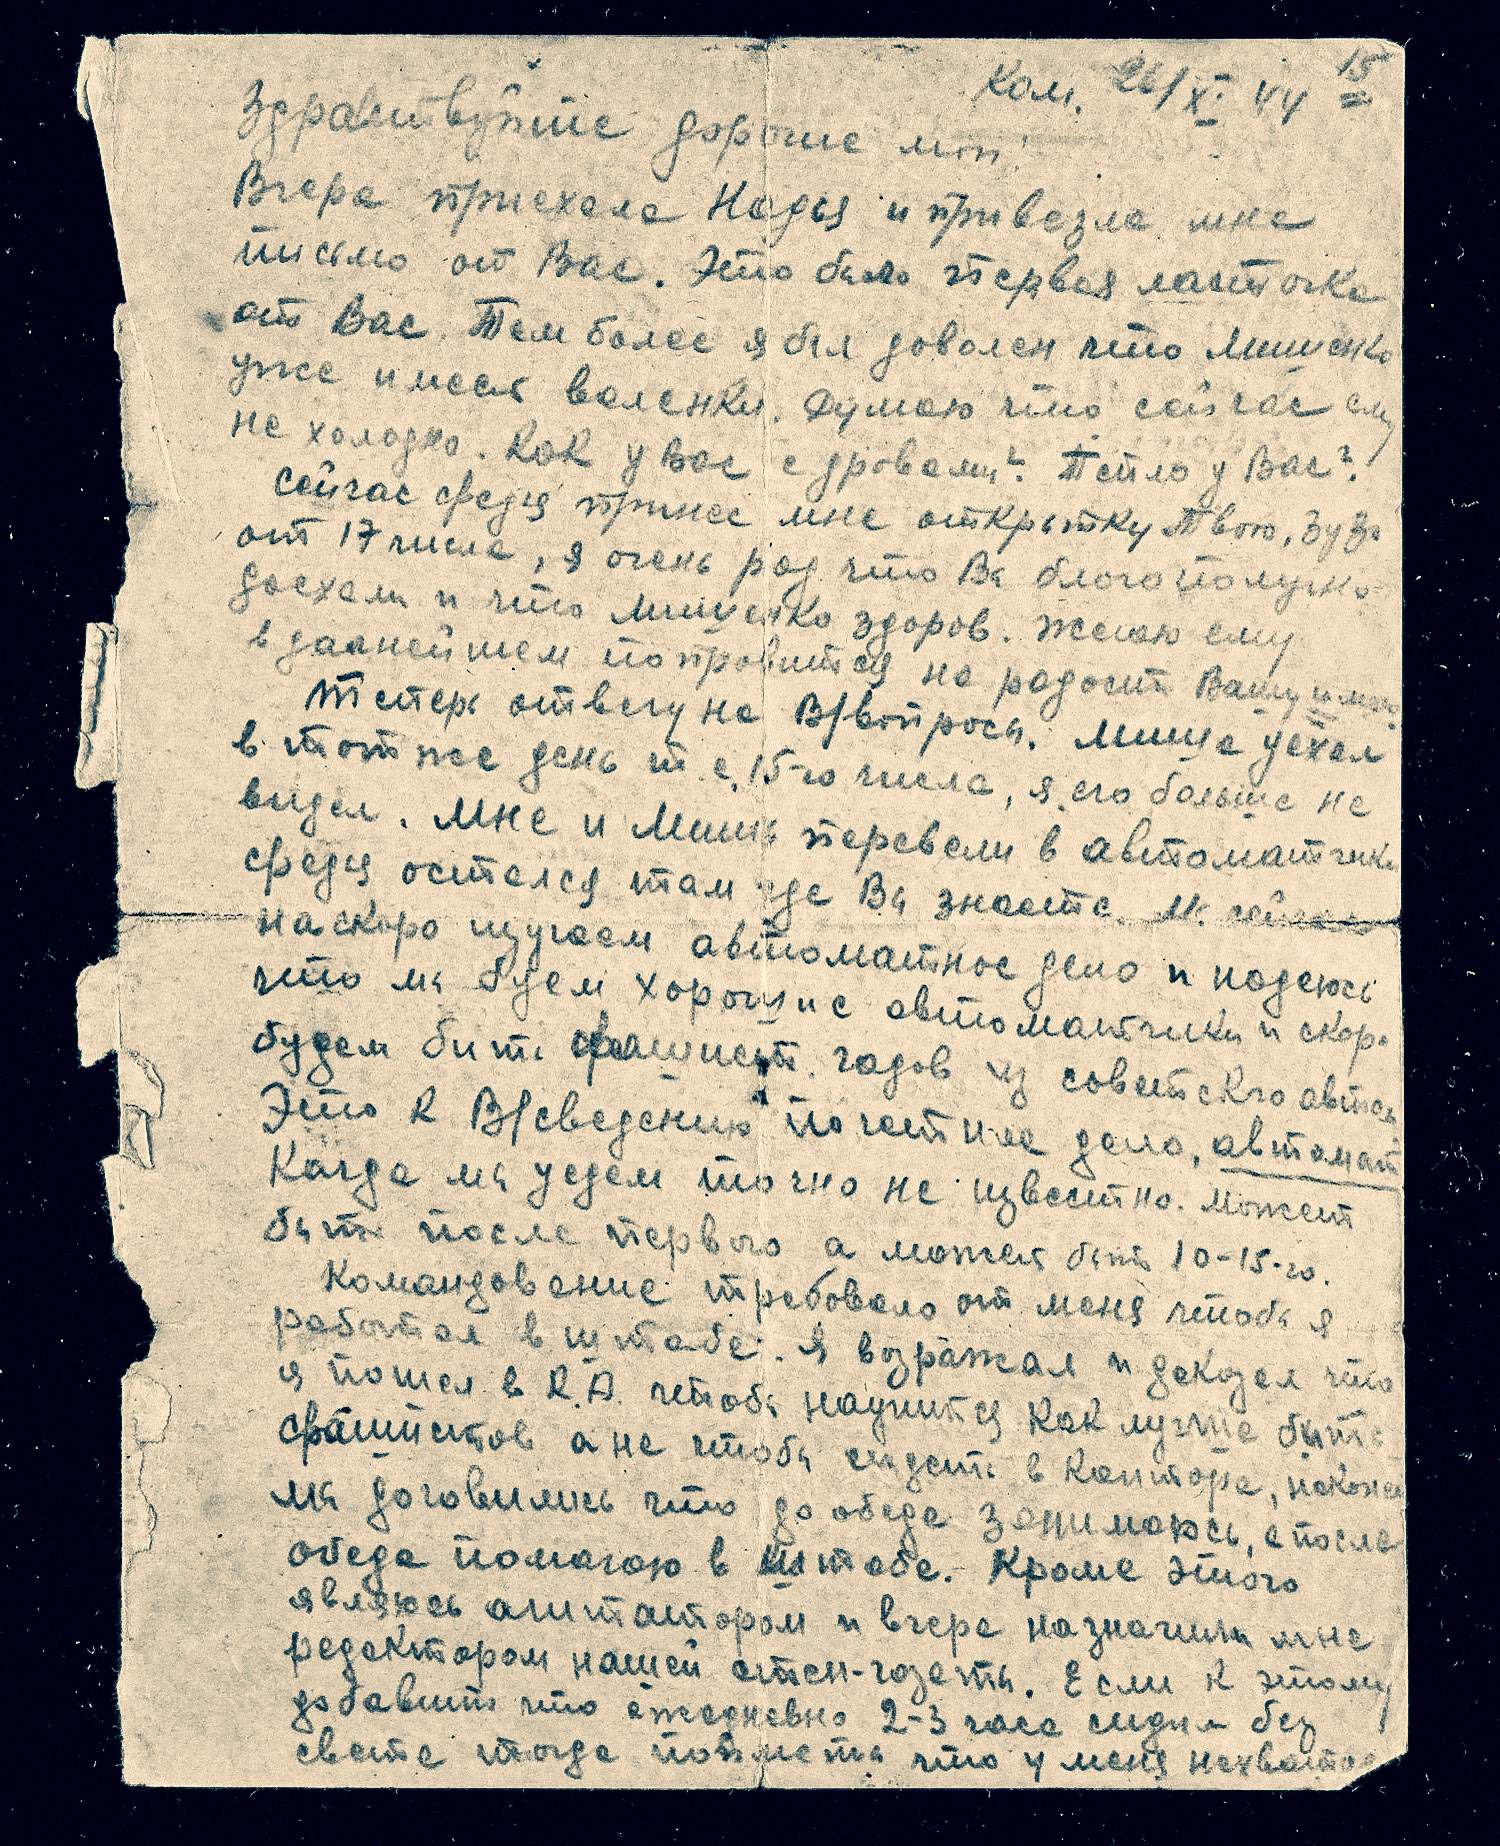 15
Ком. 26/XI 44
Здравствуйте дорогие мои!
Вчера приехала Надя и привезла мне
письмо от Вас. Это была первая ласточка
от Вас. Тем более я был доволен что Мишенка
уже имеет валенки. Думаю что сейчас ему
не холодно. Как у Вас с дровами? Тепло у Вас?
Сейчас Федя принес мне открытку Твою,
от 17 числа, я очень рад что Вы благополучно
доехали и что Мишенка здоров. Желаю ему
в далнейшем поправится на радость Вашу и мою.
Теперь отвечу на В/вопросы. Миша уехал
в тот же день т.е. 15-го числа, я его больше не
видел. Мне и Мишу перевели в автоматчики
Федя остался там где Вы знаете. Мы сейчас
наскоро изучаем автоматное дело и надеюсь
что мы будем хорошие автоматчики и скоро
будем бить фашист. гадов из советского автом.
Это к В/сведению почетное дело, автомат
Когда мы уедем точно не известно. Может
быть после первого а может быть 10-15-го.
Командование требовало от меня чтобы я
работал в штабе. Я возражал и доказал что
я пошел в К.А. чтобы научится как лучше быть
фашистов а не чтобы сидеть в канторе, наконец
мы договились что до обеда занимаюсь, а после
обеда помогаю в штабе. Кроме этого
являюсь агитатором и вчера назначили мне
редактором нашей стен-газеты. Если к этому
добавить что ежедневно 2-3 часа сидим без
света тогда поймете что у меня нехватает